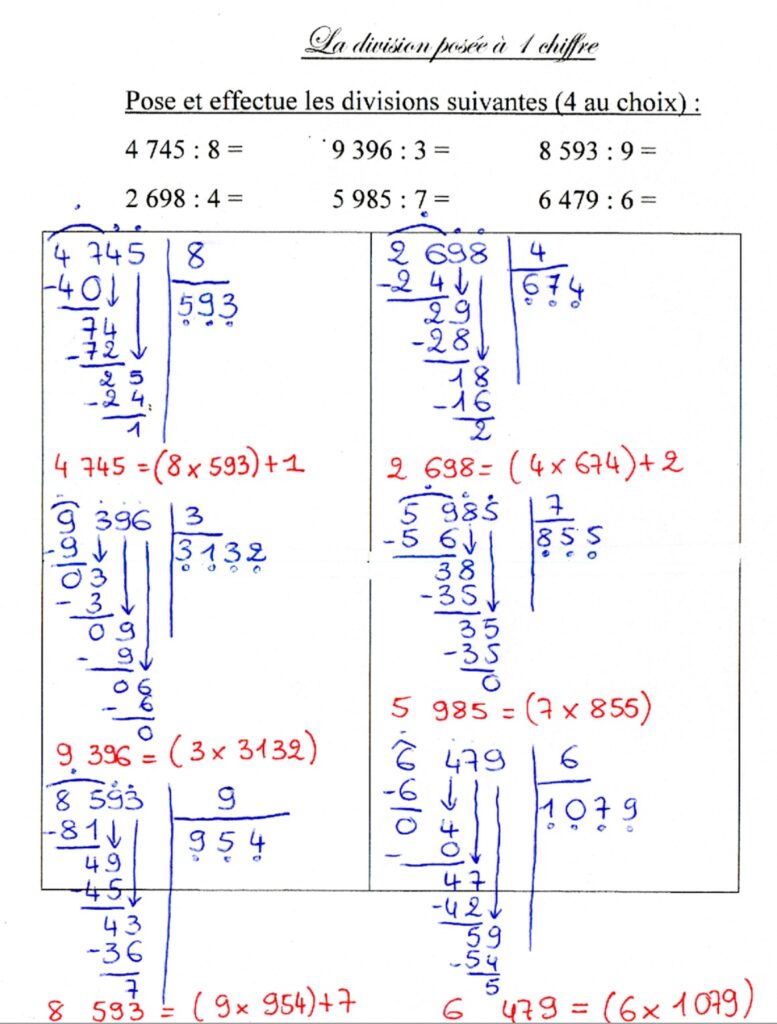 La division posée à 1 chiffre
Pose et effectue les divisions suivantes (4 au choix) :
4 745 : 8 =
9 396 : 3 =
8 593 : 9 =
2 698 : 4 =
5 985 : 7 =
6 479 : 6 =
4 745 8
-40 593
74
-72
25
-24
1
4 745 = (8 x 593) + 1
2 698 4
-2 4 674
29
-28
18
-16
2
2 698 = (4 x 674) + 2
9 396 3
-9 3132
03
- 3
09
- 9
06
- 6
0
9 396 = (3 x 3132)
5 985 7
-5 6 855
38
-35
35
-35
0
5 985 = (7 x 855)
8 593 9
-81 954
49
-45
43
-36
7
8 593 = (9 x 954) + 7
6 479 6
-6 1079
0 4
- 0
47
-42
59
-54
5
6 479 = (6 x 1079)